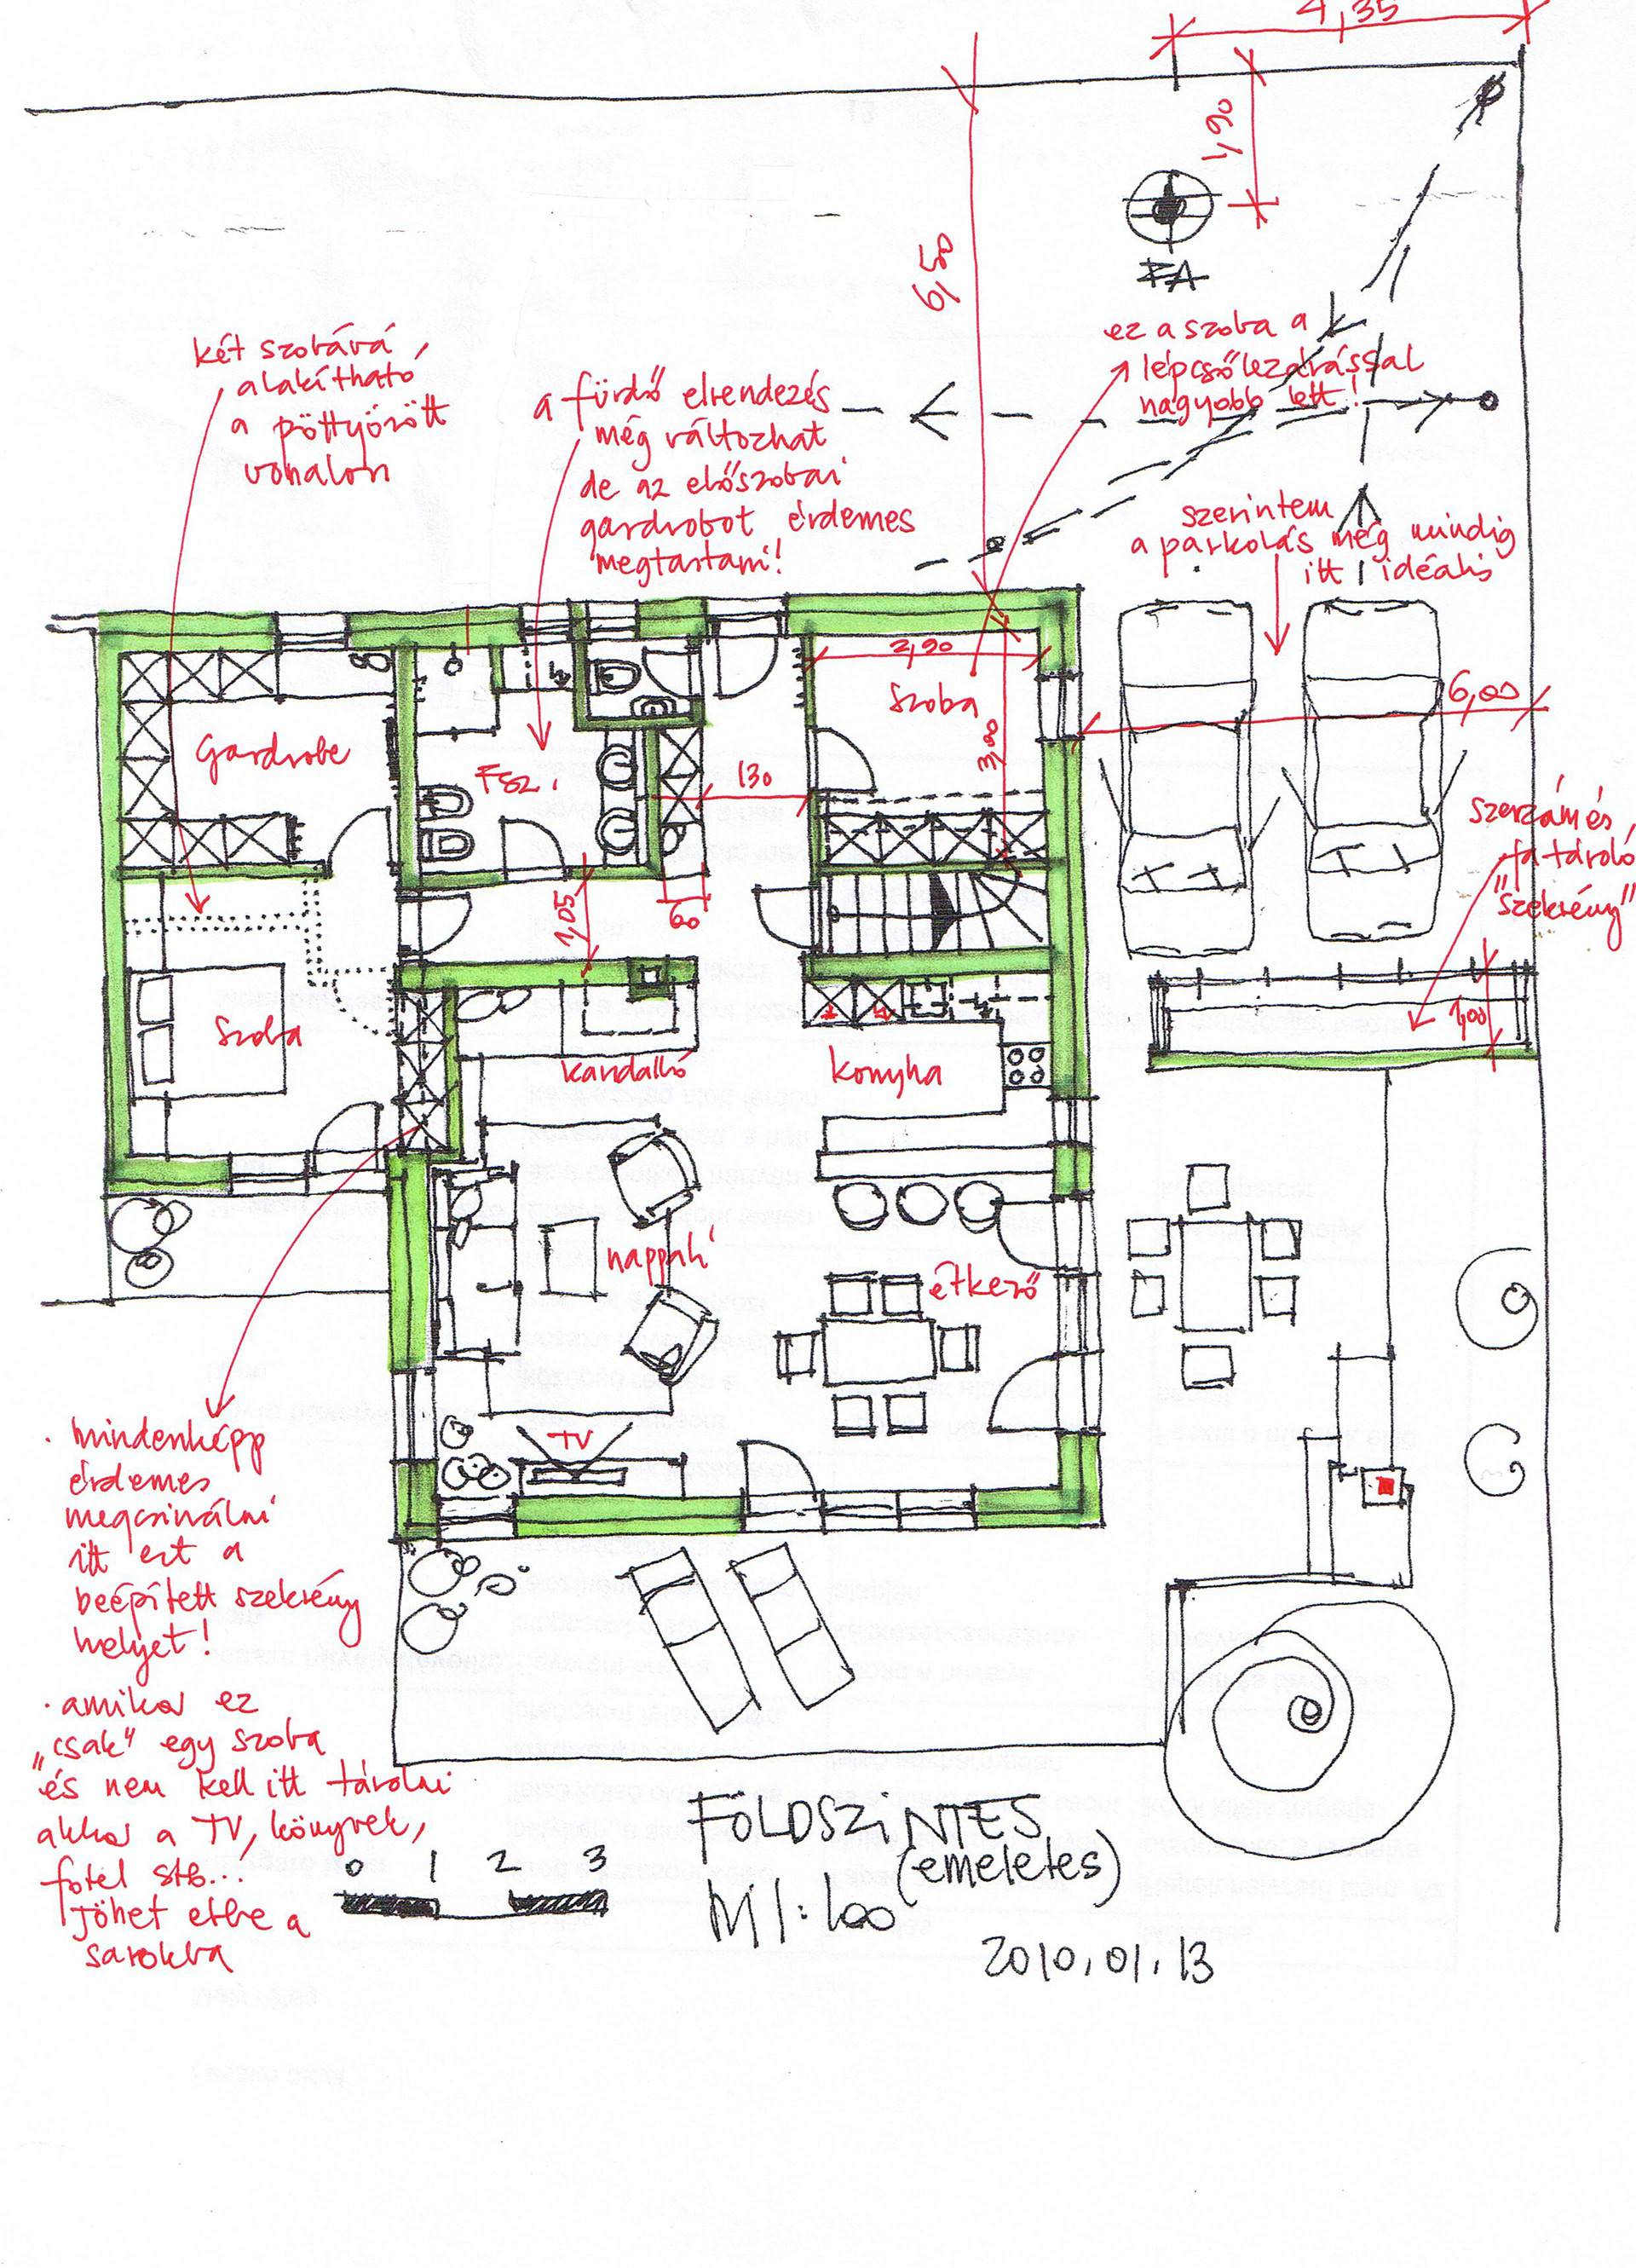 4,35
1,90
6,50
FA
ez a szoba a
lépcsőlezárással
nagyobb lett!
két szobává
alakítható
a pöttyözött
vonalon
a fürdő elrendezés
még változhat
de az előszobai
gardrobot érdemes
megtartani!
szerintem
a parkolás még mindig
itt ideális
2,90
szoba
3,00
6,00
Gardrobe
Fsz.
130
60
1,05
szerszám és
fa tároló
"szekrény"
1,00
szoba
kandalló
konyha
nappali
étkező
TV
· mindenképp
érdemes
megcsinálni
itt ezt a
beépített szekrény
helyet!
· amikor ez
„csak" egy szoba
és nem kell itt tárolni
akkor a TV, könyvek,
fotel stb...
jöhet ebbe a
sarokba
0 1 2 3
FÖLDSZINTES
(emeletes)
M 1:100
2010.01.13